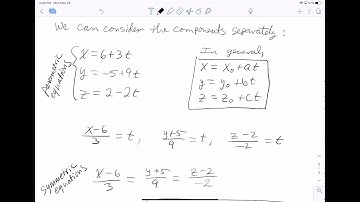 We can consider the components separately:
Parametric equations
x = 6+3t
y = -5+9t
z = 2-2t
In general,
x = x₀+at
y = y₀+bt
z = z₀+ct
x-6/3 = t, y+5/9 = t, z-2/-2 = t
symmetric equations
x-6/3 = y+5/9 = z-2/-2